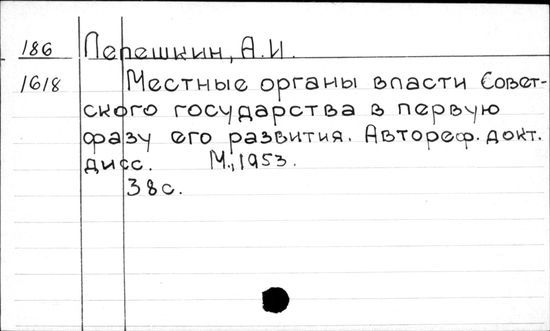 186 Пепешкин, А.И.
1618 Местные органы власти Совет-
ского государства в первую
фазу его развития. Автореф. докт.
дисс. М., 1953.
38с.